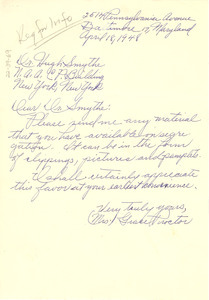 2514 Pennsylvania Avenue
Baltimore 17 Maryland
April 18, 1948
Dr. Hugh Smythe
N.A.A.C.P. Building
New York, New York
Dear Dr. Smythe:
Please send me any material
that you have available on segre
gation. It can be in the form
of clippings, pictures and pamplets.
I shall certainly appreciate
this favor at your earliest convenience.
Very truly yours,
Mrs. Grace Proctor